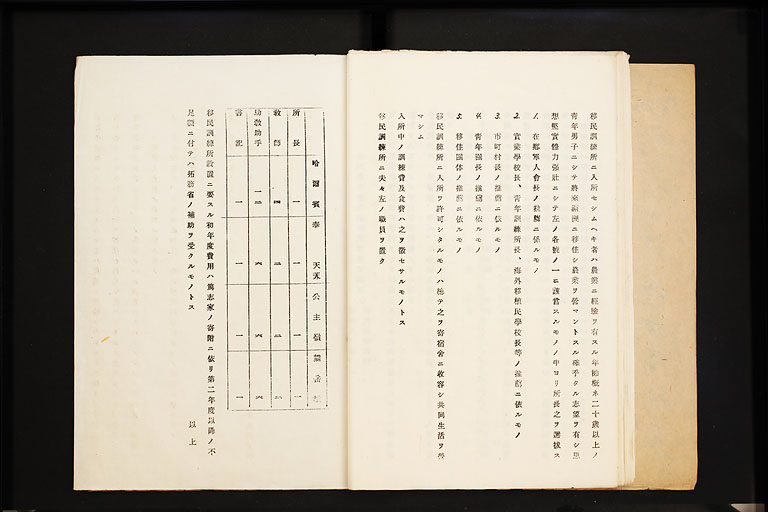 移民訓練所ニ入所セシムヘキ者ハ農業ニ経験ヲ有スル年齢概ネ二十歳以上ノ
青年男子ニシテ将来満洲ニ移住シ農業ヲ営マントスル確乎タル志望ヲ有シ思
想堅実体力強壮ニシテ左ノ各號ノ一ニ該当スルモノノ中ヨリ所長之ヲ選抜ス
1. 在郷軍人會長ノ推薦ニ係ルモノ
2. 実業學校長、青年訓練所長、海外移植民學校長等ノ推薦ニ依ルモノ
3. 市町村長ノ推薦ニ依ルモノ
4. 青年団長ノ推薦ニ依ルモノ
5. 移住団体ノ推薦ニ依ルモノ
移民訓練所ニ入所ヲ許可シタルモノハ総テ之ヲ寄宿舎ニ收容シ共同生活ヲ營
マシム
入所中ノ訓練費及食費ハ之ヲ徴セサルモノトス
移民訓練所ニ夫々左ノ職員ヲ置ク
哈爾賓 奉天 公主嶺 熊岳城
所長 一 一 一 一
教師 四 二 二 二
助教助手 一二 六 六 六
書記 一 一 一 一
移民訓練所設置ニ要スル初年度費用ハ篤志家ノ寄附ニ依リ第二年度以降ノ不
足額ニ付テハ拓務省ノ補助ヲ受クルモノトス
以上